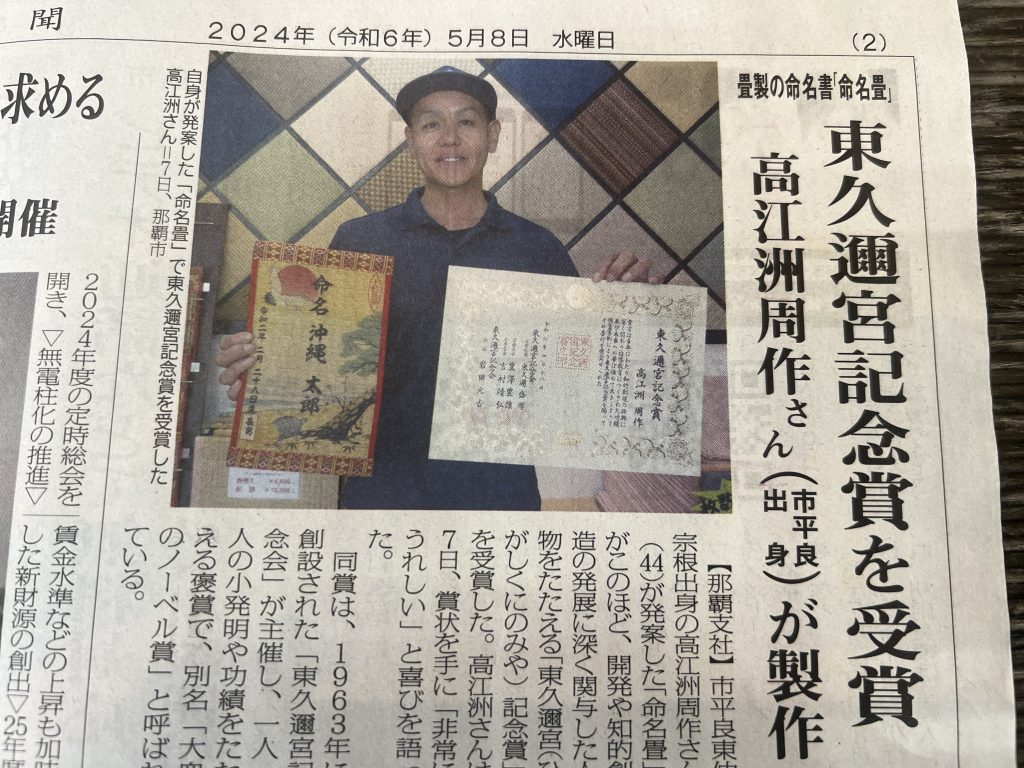 聞
2024年(令和6年)5月8日 水曜日
(2)
畳製の命名書「命名畳」
東久邇宮記念賞を受賞
高江洲周作さん(市平良出身)が製作
自身が発案した「命名畳」で東久邇宮記念賞を受賞した
高江洲さん=7日、那覇市
命名 沖縄 太郎
東久邇宮記念賞
高江洲 周作
【那覇支社】市平良東仲
宗根出身の高江洲周作さん
(44)が発案した「命名畳」
がこのほど、開発や知的創
造の発展に深く関与した人
物をたたえる「東久邇宮(ひ
がしくにのみや)記念賞」
を受賞した。高江洲さんは
7日、賞状を手に「非常に
うれしい」と喜びを語っ
た。
同賞は、1963年に
創設された「東久邇宮記
念会」が主催し、一人
人の小発明や功績をたた
える褒賞で、別名「大衆
のノーベル賞」と呼ばれ
ている。
求める
開催
2024年度の定時総会を
開き、▽無電柱化の推進▽
賃金水準などの上昇も加味
した新財源の創出▽25年度